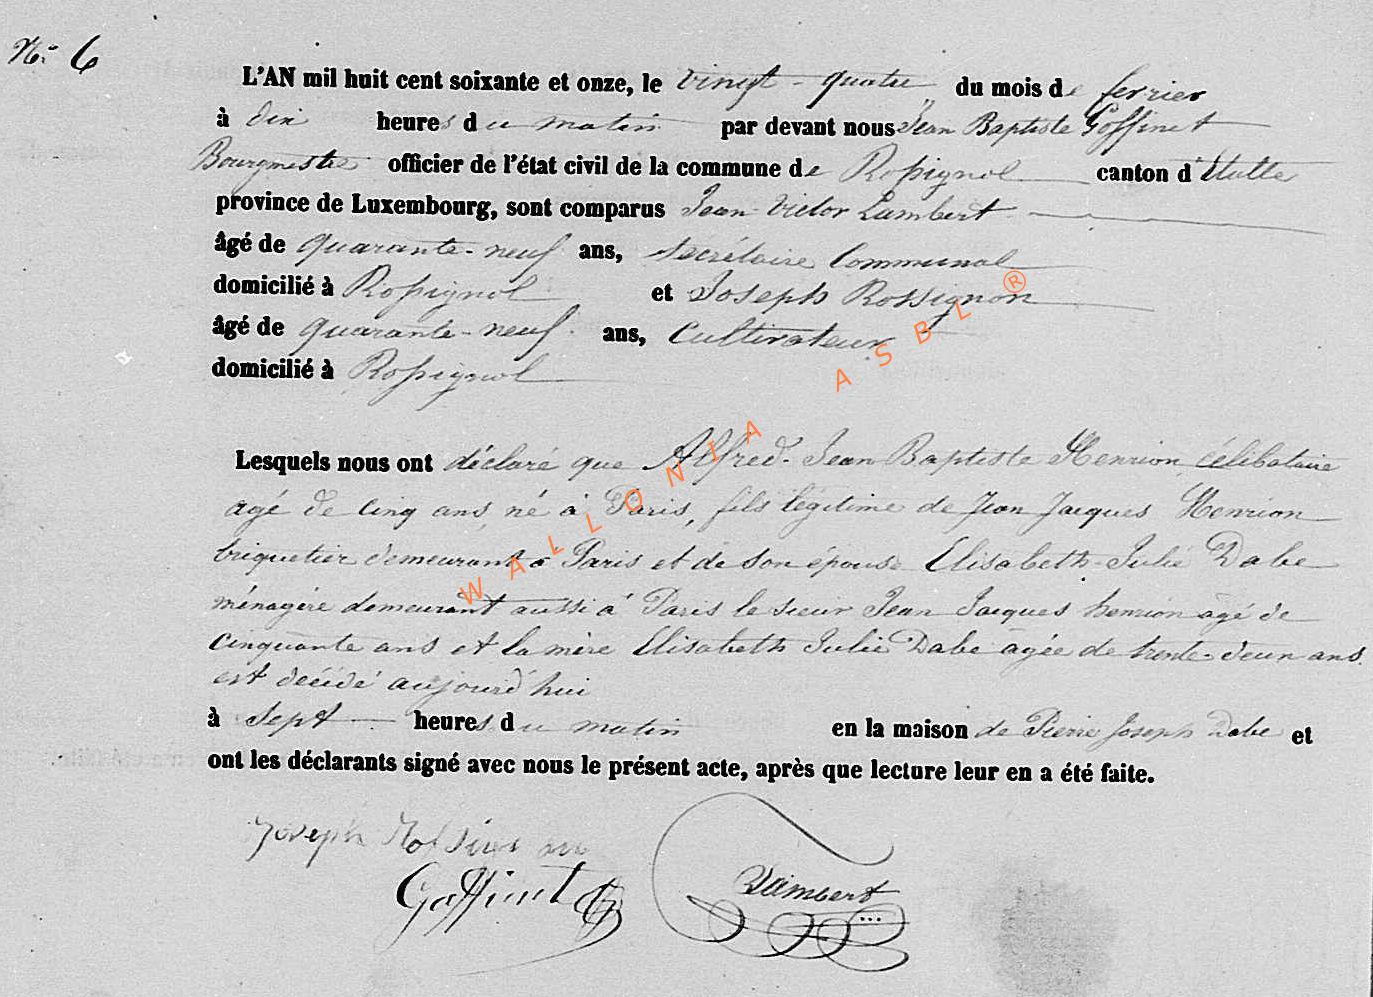 No 6
L'AN mil huit cent soixante et onze, le vingt-quatre du mois de fevrier
à dix heures du matin par devant nous Jean Baptiste Goffinet
Bourgmestre officier de l'état civil de la commune de Rossignol canton d'Etalle
province de Luxembourg, sont comparus Jean Victor Lambert
âgé de quarante-neuf ans, secrétaire Communal
domicilié à Rossignol et Joseph Rossignon
âgé de quarante-neuf ans, Cultivateur
domicilié à Rossignol
Lesquels nous ont déclaré que Alfred-Jean Baptiste Henrion célibataire
agé de cinq ans, né à Paris, fils légitime de Jean Jacques Henrion
briquetier demeurant à Paris et de son épouse Elisabeth-Julie Dabe
ménagère demeurant aussi à Paris le sieur Jean Jacques henrion agé de
cinquante ans et la mère Elisabeth Julie Dabe agée de trente-deux ans.
est décédé aujourd'hui
à sept heures du matin en la maison de Pierre Joseph Dabe et
ont les déclarants signé avec nous le présent acte, après que lecture leur en a été faite.
Joseph Rossignon
Goffinet
Lambert
WALLONIA ASBL ®